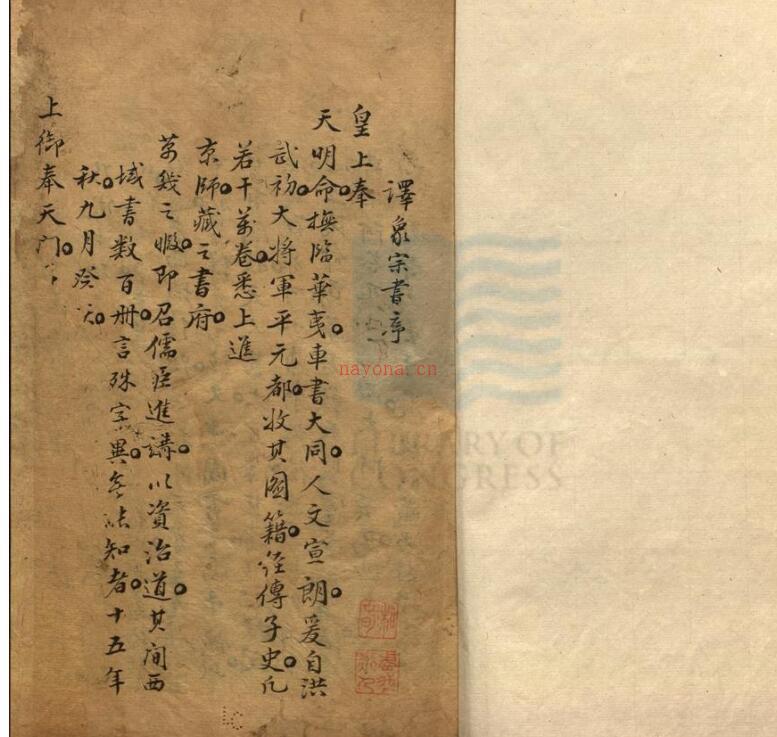 譯象宗書序
皇上奉
天明命。撫臨華夷。車書大同。人文宣朗。爰自洪
武初。大將軍平元都。收其圖籍。經傳子史。凡
若干萬卷。悉上進
京師。藏之書府。
萬幾之暇。即召儒臣進講。以資治道。其間西
域書數百冊。言殊字異。無能知者。十五年
秋。九月癸
上御奉天門。
nayona.cn
LIBRARY OF
CONGRESS